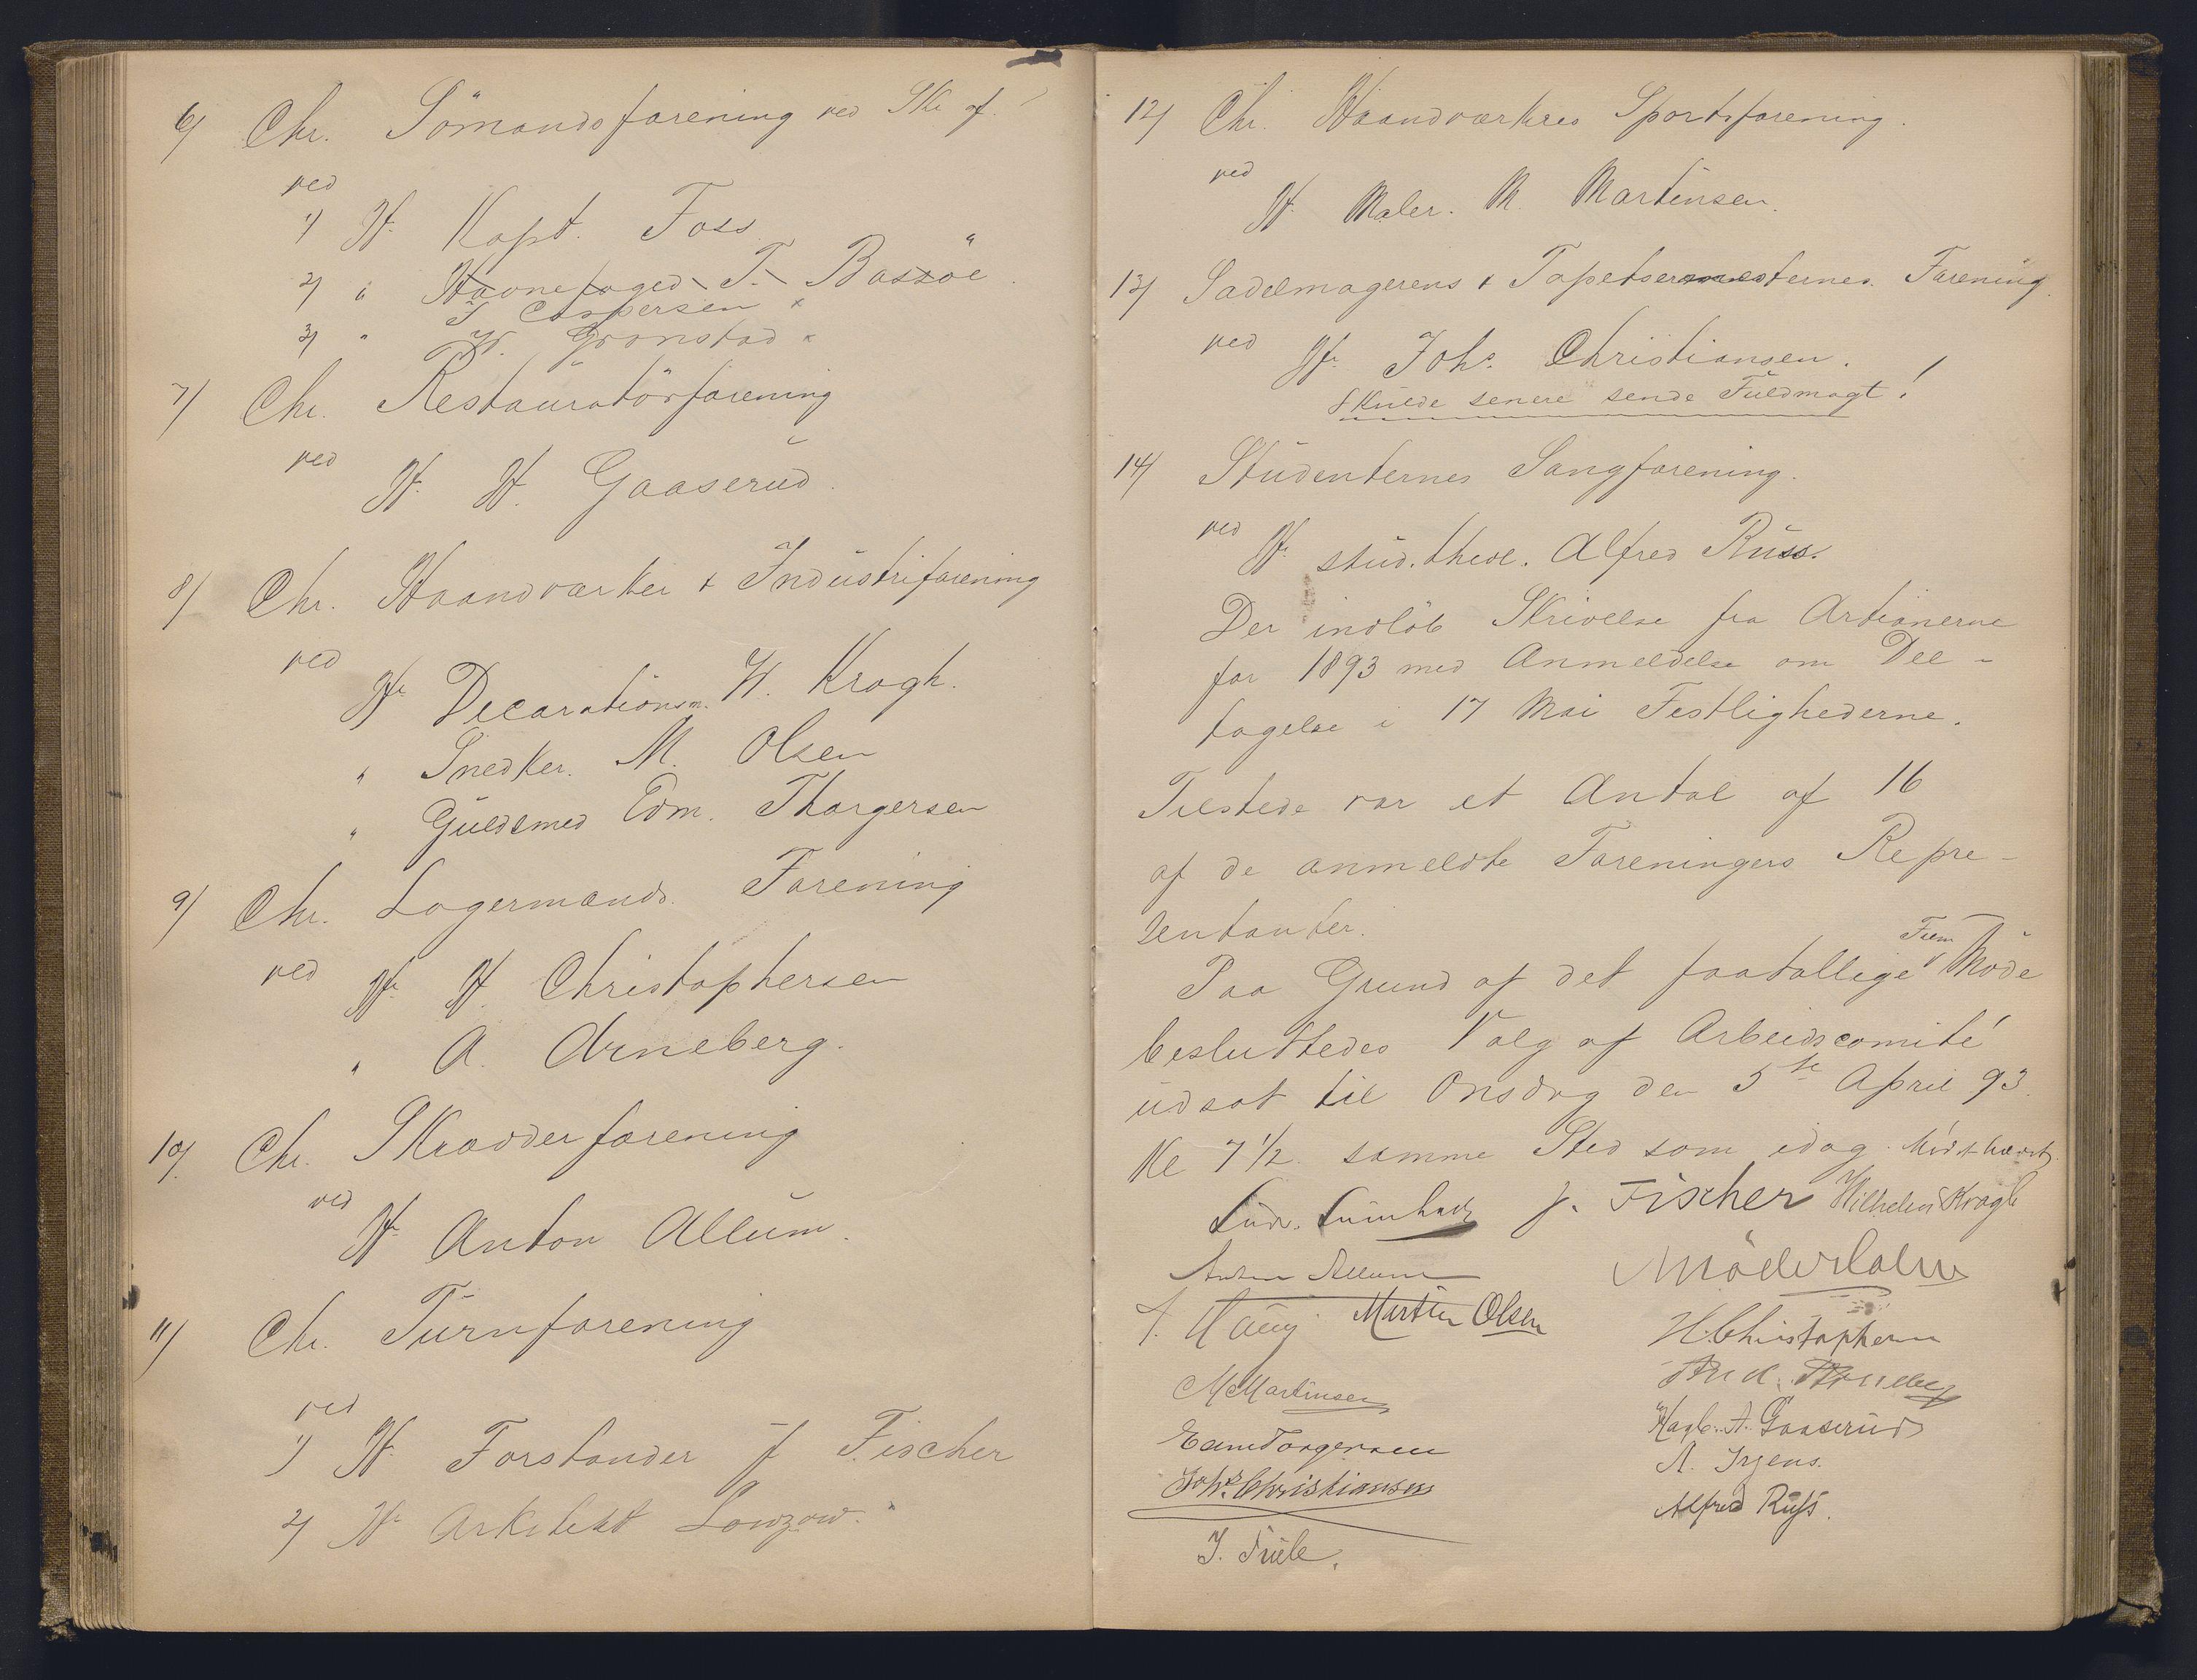 6/ Chr. Sömandsforening ved Skr. af.
ved
1) Hr. Kapt. Foss
2) " Havnefoged T. Bassöe "
T Caspersen "
3) " H. Grønstad "
7/ Chr. Restauratörforening
ved Hr. H. Gaaserud.
8/ Chr. Haandværker & Industriforening
ved Hr Decorationsm. W. Krogh.
" Snedker. M. Olsen
" Guldsmed Edm. Thorgersen
9/ Chr. Lagermænds. Forening
ved Hr H. Christophersen
" A. Arneberg.
10/ Chr. Skrædderforening
ved Hr Anton Allum.
11/ Chr. Turnforening
ved
1) Hr Forstander J Fischer
2) Hr Arkitekt Lowzow.
12/ Chr. Haandværkres Sportsforening.
ved
Hr Maler. M. Martinsen.
13/ Sadelmagerens & Tapetsermesternes Forening.
ved Hr. Johs. Christiansen.
Skulde senere sende Fuldmagt!
14/ Studenternes Sangforening.
ved Hr stud. theol. Alfred Russ.
Der indlöb Skrivelse fra Artianerne
for 1893 med Anmeldelse om Del-
tagelse i 17 Mai Festlighederne.
Tilstede var et Antal af 16
af de anmeldte Foreningers Repre-
sentanter.
Paa Grund af det faatallige Frem Möde
besluttedes Valg af Arbeidscomité
udsat til Onsdag den 5te April 93.
Kl 7 1/2 samme Sted som idag. Mödet hævet.
J. Fischer Wilhelm Krogh
Anton Allum
Martin Olsen
H. Christophersen
M Martinsen
Hagb. A. Gaaserud
Edm Torgersen
A. Irgens.
Johs. Christiansen
Alfred Russ.
J. Friele.